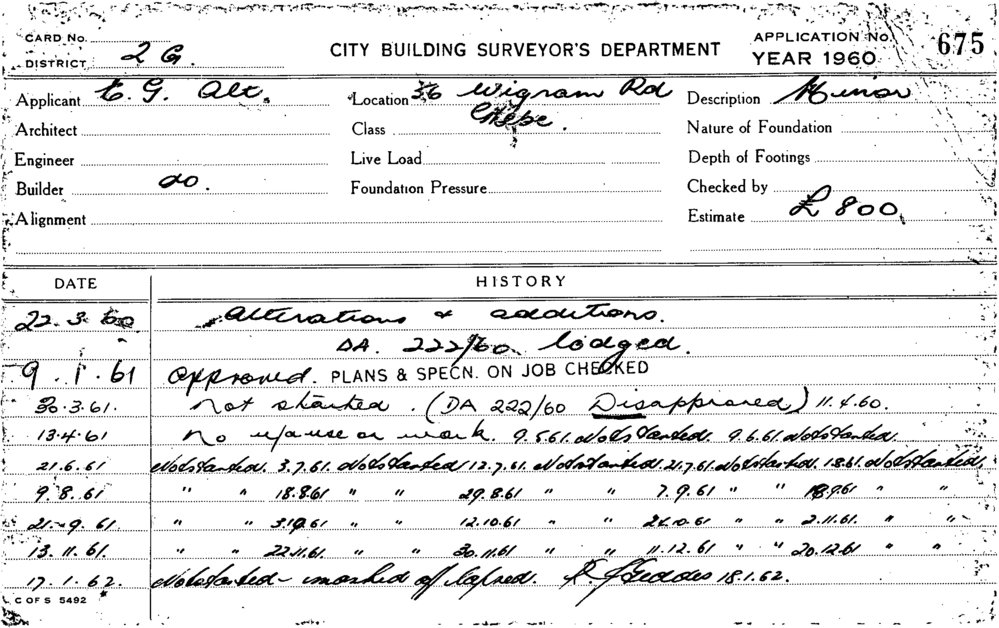 CARD No.
APPLICATION No. 675
DISTRICT 2 G.
CITY BUILDING SURVEYOR'S DEPARTMENT
YEAR 1960
Applicant E. G. Alt.
Location 36 Wigram Rd
Description Minor
Architect
Class Glebe.
Nature of Foundation
Engineer
Live Load
Depth of Footings
Builder do.
Foundation Pressure
Checked by
Alignment
Estimate £800
DATE HISTORY
22.3.60 Alterations & additions.
DA. 222/60 lodged.
9.1.61 Approved. PLANS & SPECN. ON JOB CHECKED
30.3.61. Not started. (DA 222/60 Disapproved) 11.4.60.
13.4.61 No u/ause or work. 9.5.61. Not started. 9.6.61. Not started.
21.6.61 Not started. 3.7.61. Not started 12.7.61. Not started. 21.7.61. Not started. 1.8.61. Not started.
9.8.61 " " 18.8.61 " " 29.8.61 " " 7.9.61 " " 18.9.61 " "
21.9.61 " " 3.10.61 " " 12.10.61 " " 24.10.61 " " 2.11.61. " "
13.11.61. " " 22.11.61. " " 30.11.61 " " 11.12.61 " " 20.12.61 " "
17.1.62. Not started - marked off lapsed. R. J. Geddes 18.1.62.
C OF S 5492